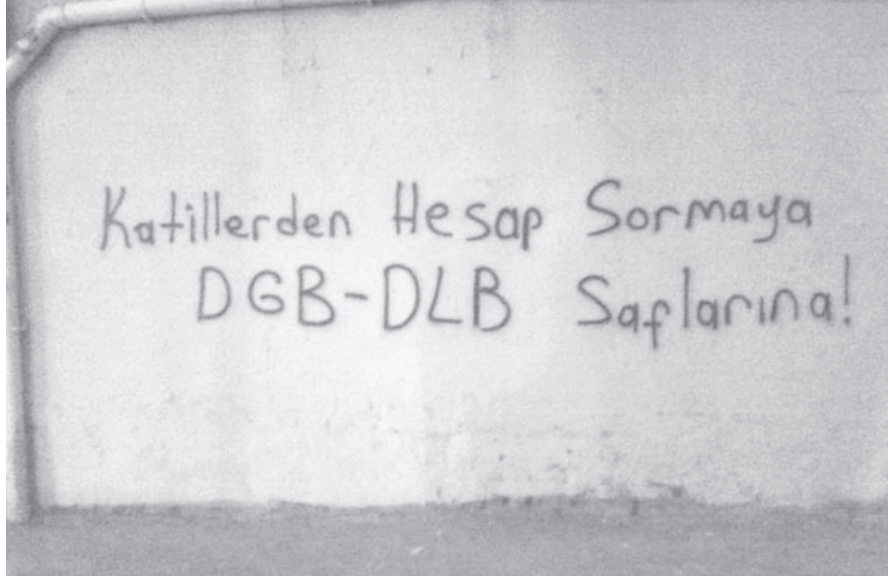 Katillerden Hesap Sormaya
DGB-DLB Saflarına!